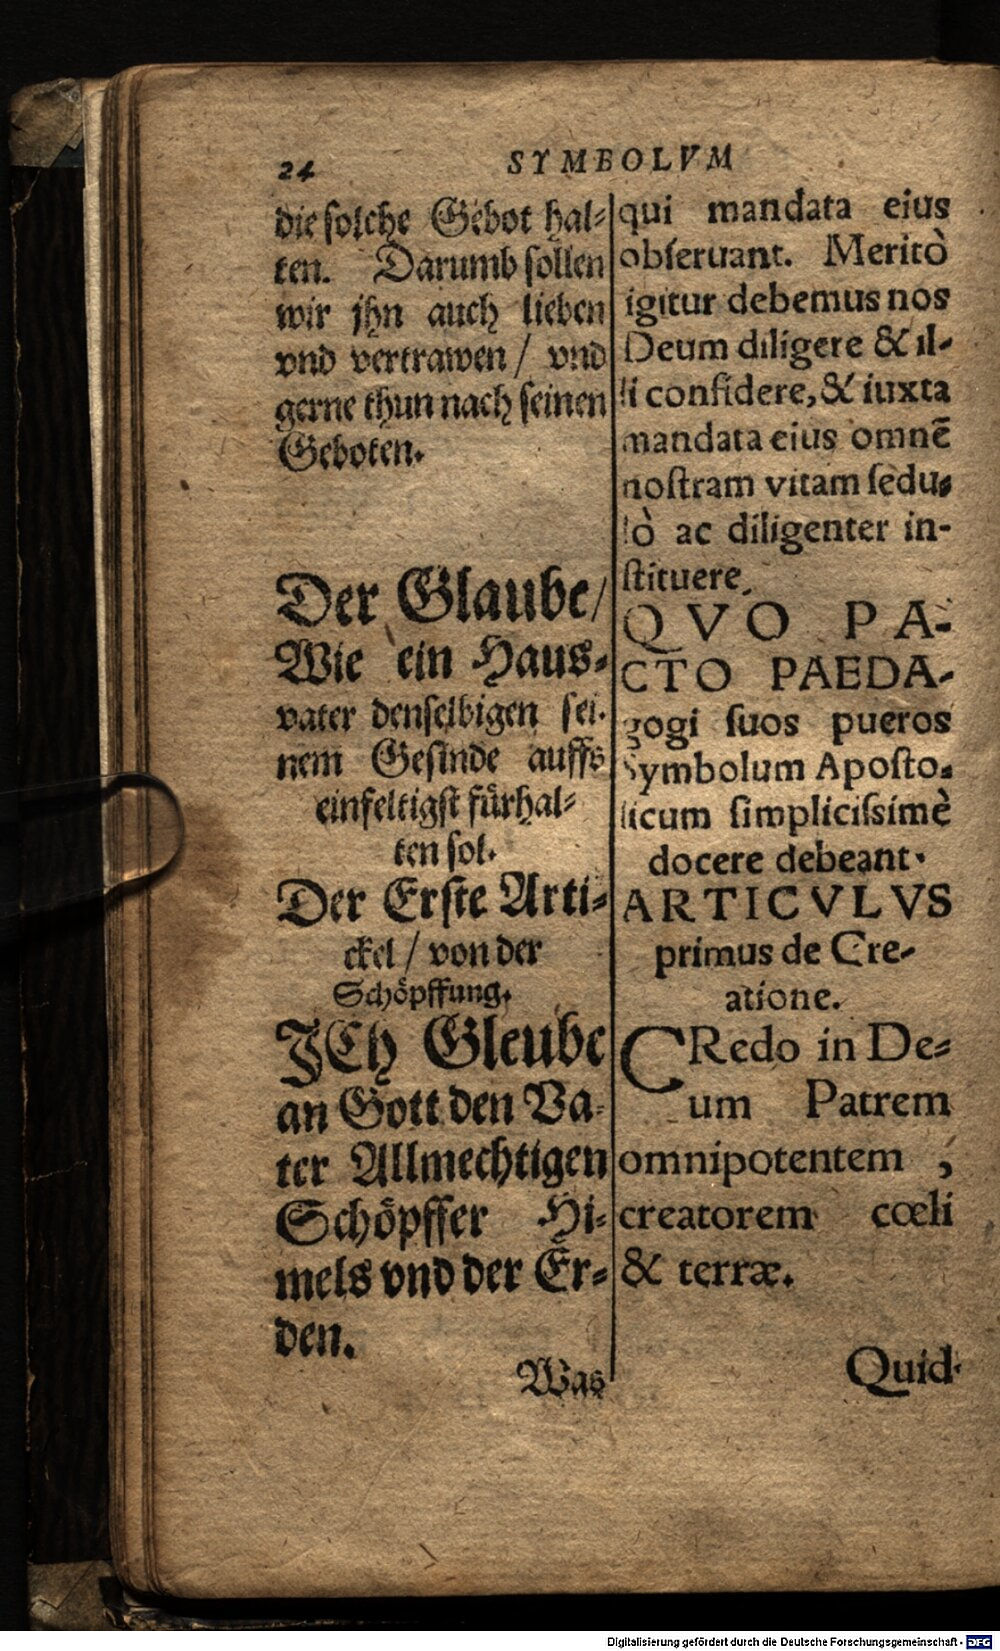 24 SYMBOLVM
die ſolche Gebot hal⸗
ten. Darumb ſollen
wir jhn auch lieben
vnd vertrawen / vnd
gerne thun nach ſeinen
Geboten.
Der Glaube /
Wie ein Haus⸗
vater denſelbigen ſei-
nem Geſinde auffs
einfeltigſt fürhal⸗
ten ſol.
Der Erſte Arti⸗
ckel / von der
Schöpffung.
JCh Gleube
an Gott den Va⸗
ter Allmechtigen
Schöpffer Hi⸗
mels vnd der Er⸗
den.
Was
qui mandata eius
obſeruant. Meritò
igitur debemus nos
Deum diligere & il-
li confidere, & iuxta
mandata eius omnē
noſtram vitam ſedu-
lò ac diligenter in-
ſtituere.
QVO PA-
CTO PAEDA-
gogi ſuos pueros
Symbolum Apoſto-
licum ſimpliciſsimè
docere debeant.
ARTICVLVS
primus de Cre-
atione.
CRedo in De⸗
um Patrem
omnipotentem ,
creatorem cœli
& terræ.
Quid-
Digitalisierung gefördert durch die Deutsche Forschungsgemeinschaft - DFG